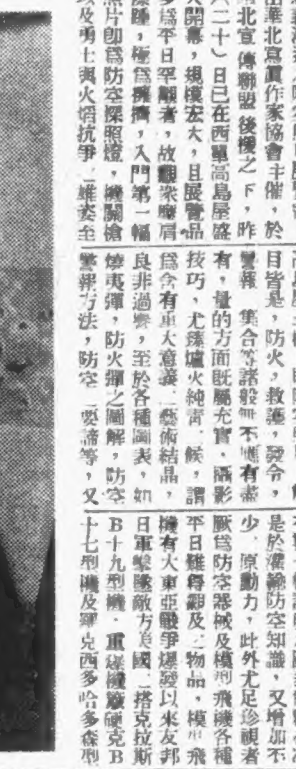 華北寫眞作家協會主催,於
北宣傳聯盟後援之下,昨
(二十)日已在西單高島屋盛
大開幕,規模宏大,且展覽品
多爲平日罕觀者,故觀衆摩肩
接踵,極爲擁擠,入門第一幅
照片卽爲防空探照燈,機關槍
以及勇士與火焰抗爭,雄姿至
目皆是,防火,救護,發令,
警報 集合等諸般無不應有盡
有,量的方面既屬充實,攝影
技巧,尤臻爐火純靑 候,謂
爲含有重大意義 藝術結晶,
良非過譽,至於各種圖表,如
燒夷彈,防火彈之圖解,防空
警報方法,防空 要諦等,又
是於灌輸防空知識,又增加不
少 原動力,此外尤足珍視者
厥爲防空器械及模型飛機各種
平日難得覯及 物品,模型飛
機有大東亞戰爭爆發以來友邦
日軍擊墜敵方美國 搭克拉斯
B十九型機 重爆機 硬克B
十七型機及羅克西多哈多森型